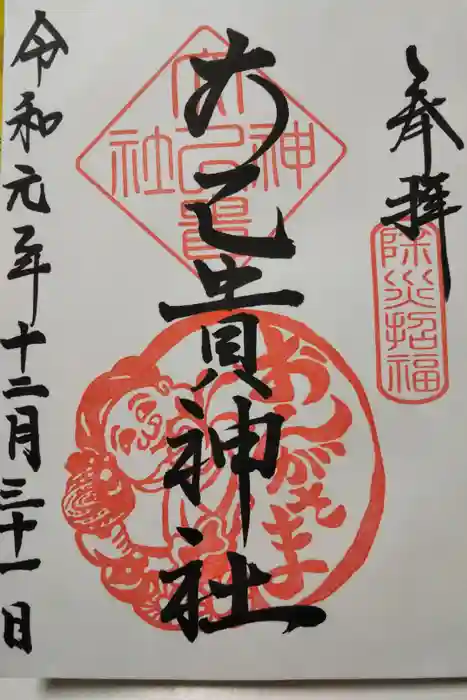 奉拝
除災招福
大己貴神社
大己貴神社
おんがさま
令和元年十二月三十一日